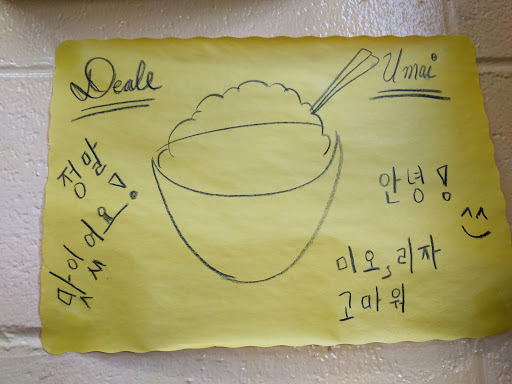 Deale
Umai
정말
맛있어요!
안녕!
^^
미오, 리자
고마워